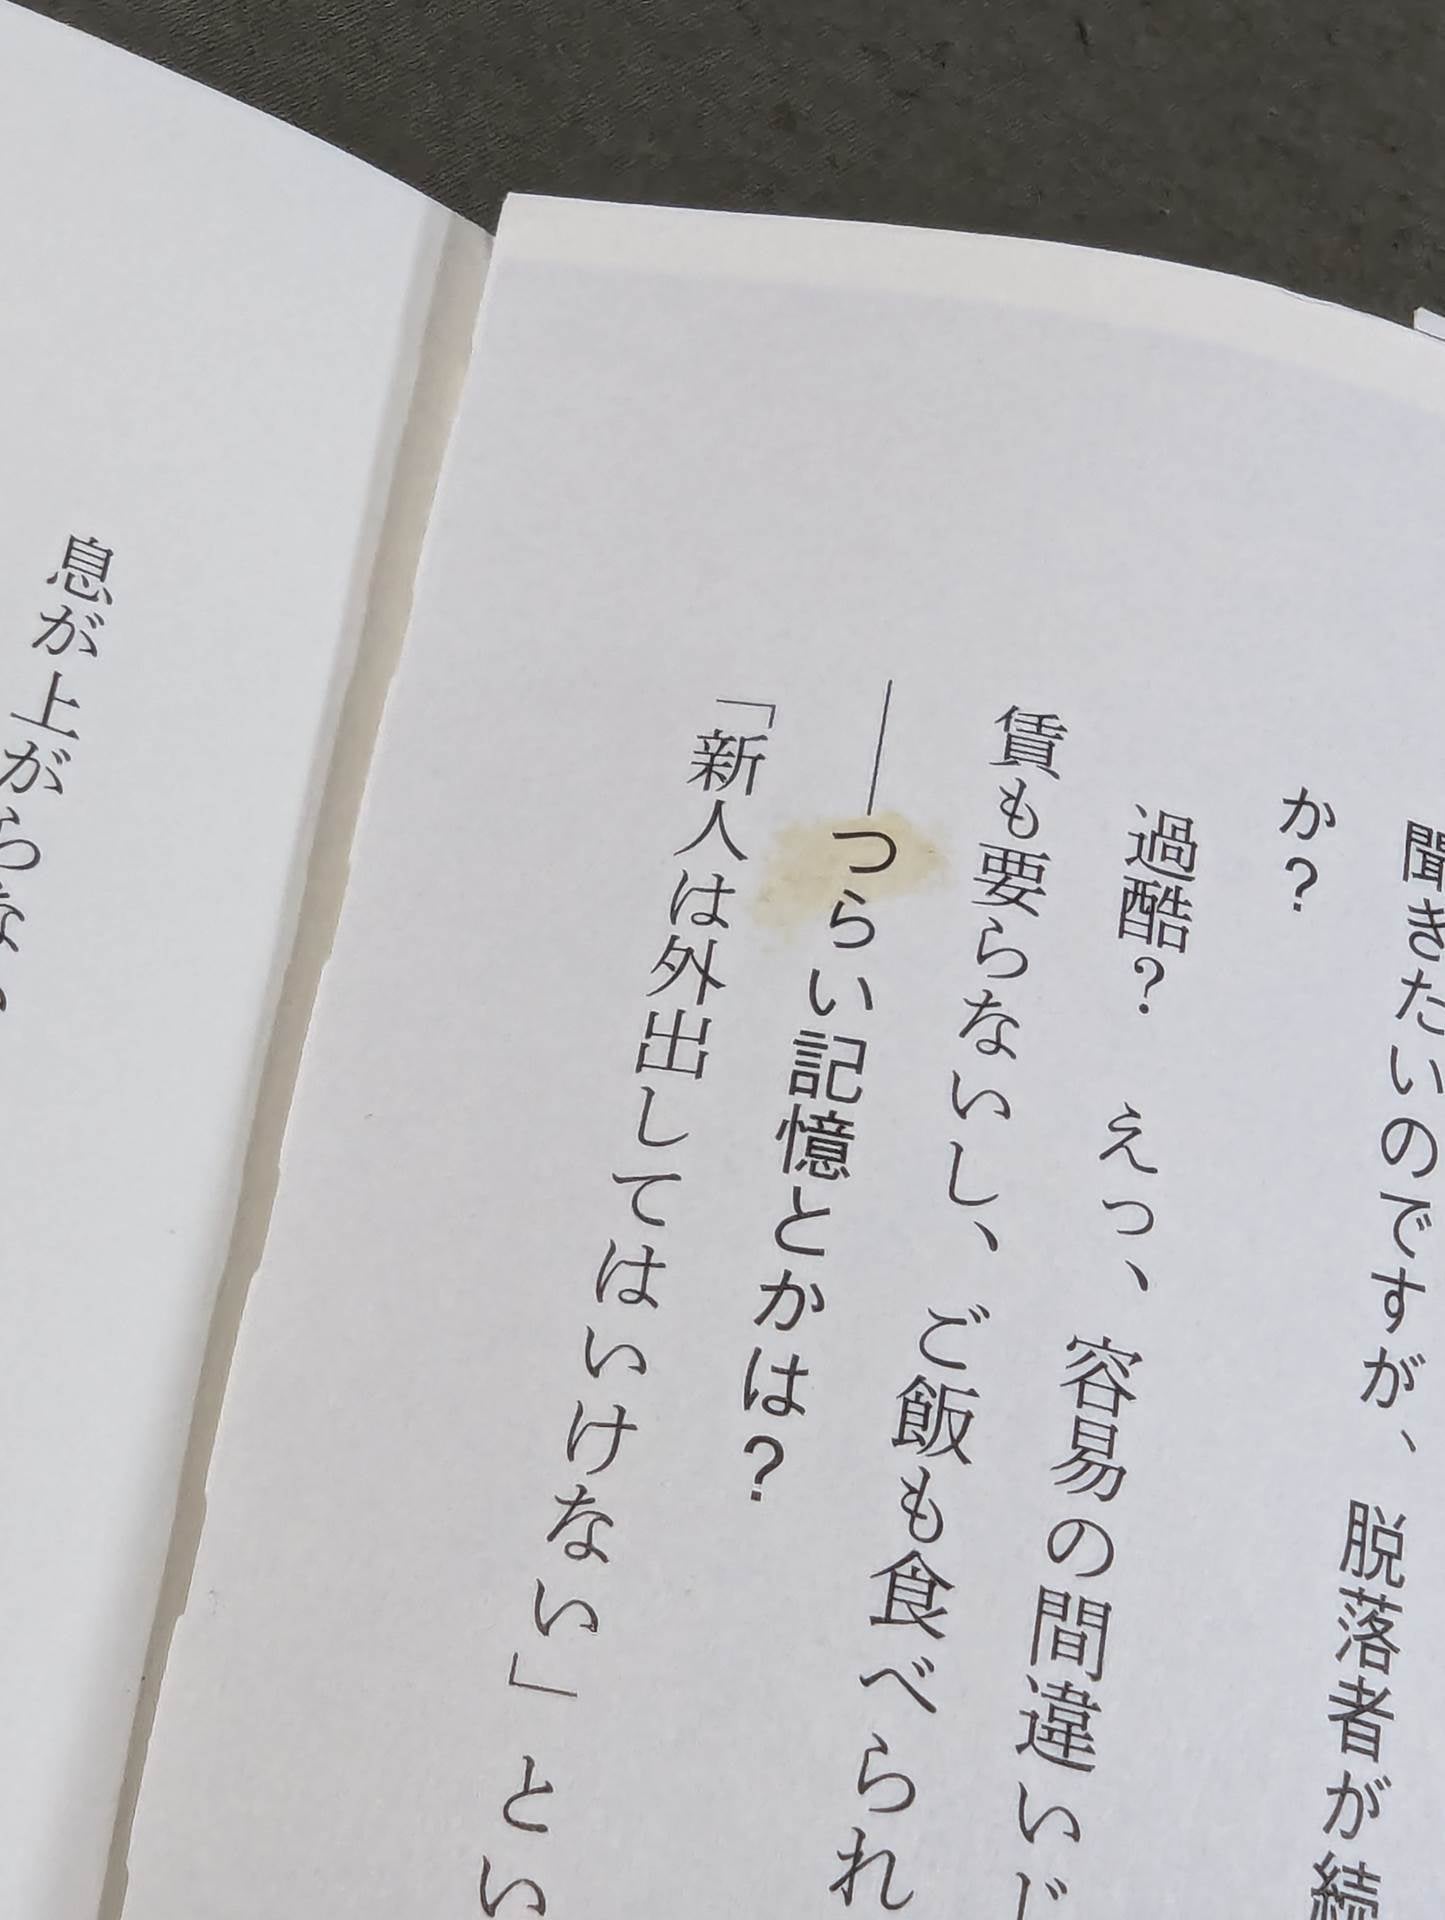 聞きたいのですが、脱落者が続
か？
過酷？　えっ、容易の間違いじ
賃も要らないし、ご飯も食べられ
――つらい記憶とかは？
「新人は外出してはいけない」とい
息が上がらない